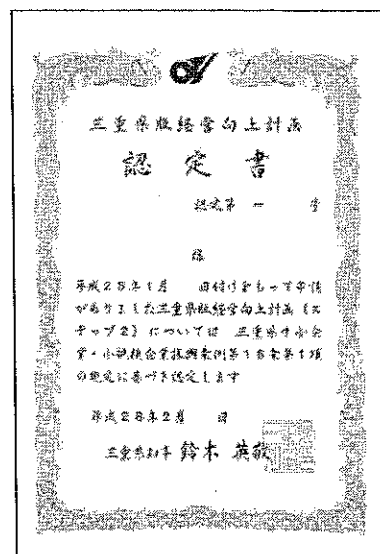 三重県版経営向上計画
認定書
認定第 一 号
様
平成28年1月 日付けをもって申請
がありました三重県版経営向上計画（ス
テップ2）については 三重県中小企
業・小規模企業振興条例第16条第1項
の規定に基づき認定します
平成28年2月 日
三重県知事 鈴木 英敬